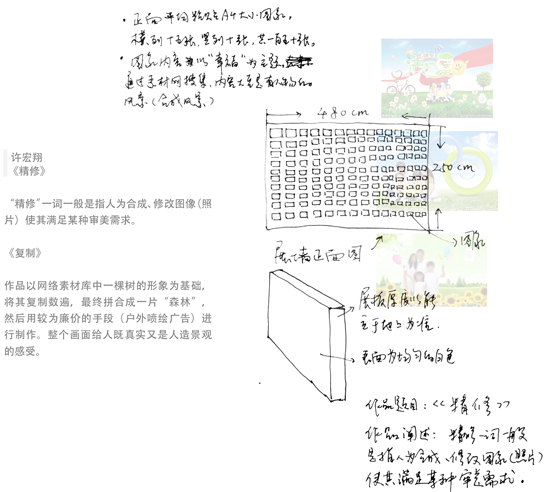 ·正面平均贴上A4大小图象。
横列十五张,竖列十张,共一百五十张。
·图象内容以“幸福”为主题,
通过素材网搜集,内容大多是有人物的
风景(合成风景)
480cm
250cm
图象
展示者正面图
展板厚度以能
立于地上为准.
表面为均匀的白色
许宏翔
《精修》
“精修”一词一般是指人为合成、修改图像(照
片)使其满足某种审美需求。
《复制》
作品以网络素材库中一棵树的形象为基础,
将其复制数遍,最终拼合成一片“森林”,
然后用较为廉价的手段(户外喷绘广告)进
行制作。整个画面给人既真实又是人造景观
的感受。
作品题目:<<精修>>
作品阐述:精修一词一般
是指人为合成、修改图象(照片)
使其满足某种审美需求。